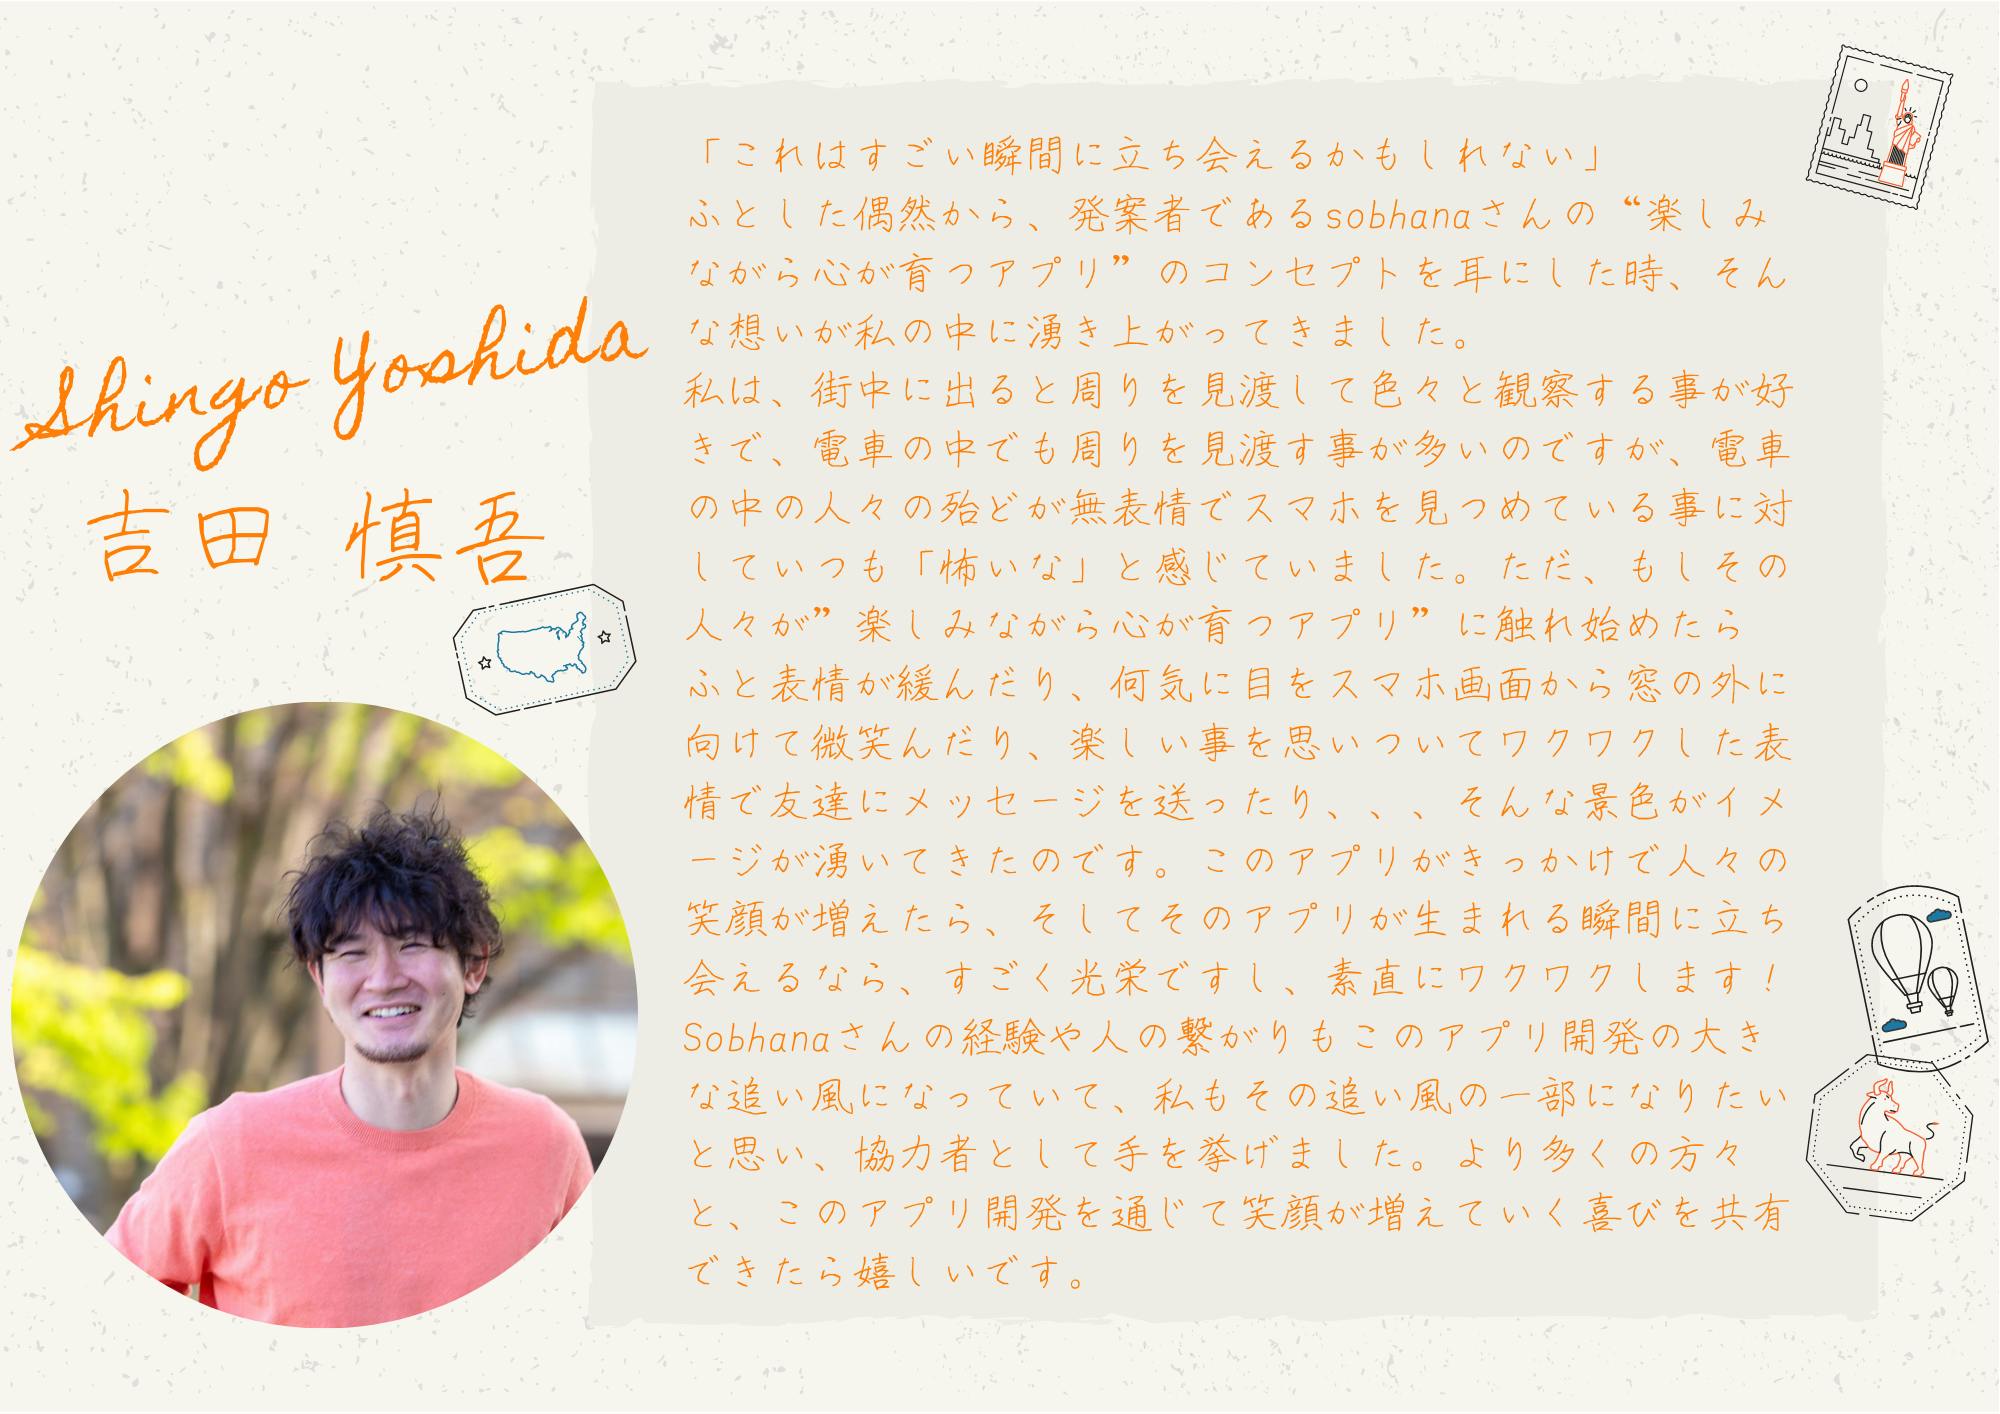 Shingo Yoshida
吉田 慎吾
「これはすごい瞬間に立ち会えるかもしれない」
ふとした偶然から、発案者であるsobhanaさんの“楽しみ
ながら心が育つアプリ”のコンセプトを耳にした時、そん
な想いが私の中に湧き上がってきました。
私は、街中に出ると周りを見渡して色々と観察する事が好
きで、電車の中でも周りを見渡す事が多いのですが、電車
の中の人々の殆どが無表情でスマホを見つめている事に対
していつも「怖いな」と感じていました。ただ、もしその
人々が”楽しみながら心が育つアプリ”に触れ始めたら
ふと表情が緩んだり、何気に目をスマホ画面から窓の外に
向けて微笑んだり、楽しい事を思いついてワクワクした表
情で友達にメッセージを送ったり、、、そんな景色がイメ
ージが湧いてきたのです。このアプリがきっかけで人々の
笑顔が増えたら、そしてそのアプリが生まれる瞬間に立ち
会えるなら、すごく光栄ですし、素直にワクワクします！
Sobhanaさんの経験や人の繋がりもこのアプリ開発の大き
な追い風になっていて、私もその追い風の一部になりたい
と思い、協力者として手を挙げました。より多くの方々
と、このアプリ開発を通じて笑顔が増えていく喜びを共有
できたら嬉しいです。